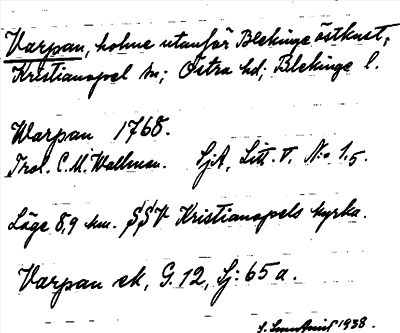 Varpan, holme utanför Blekinge östkust;
Kristianopel sn; Östra hd; Blekinge l.
Warpan 1768.
Trol. C. M. Wallman. SjA, Litt. V. N:o 1.5.
Läge 8,9 km. SSV Kristianopels kyrka.
Varpan ek, G. 12, Sj: 65 a.
1938.